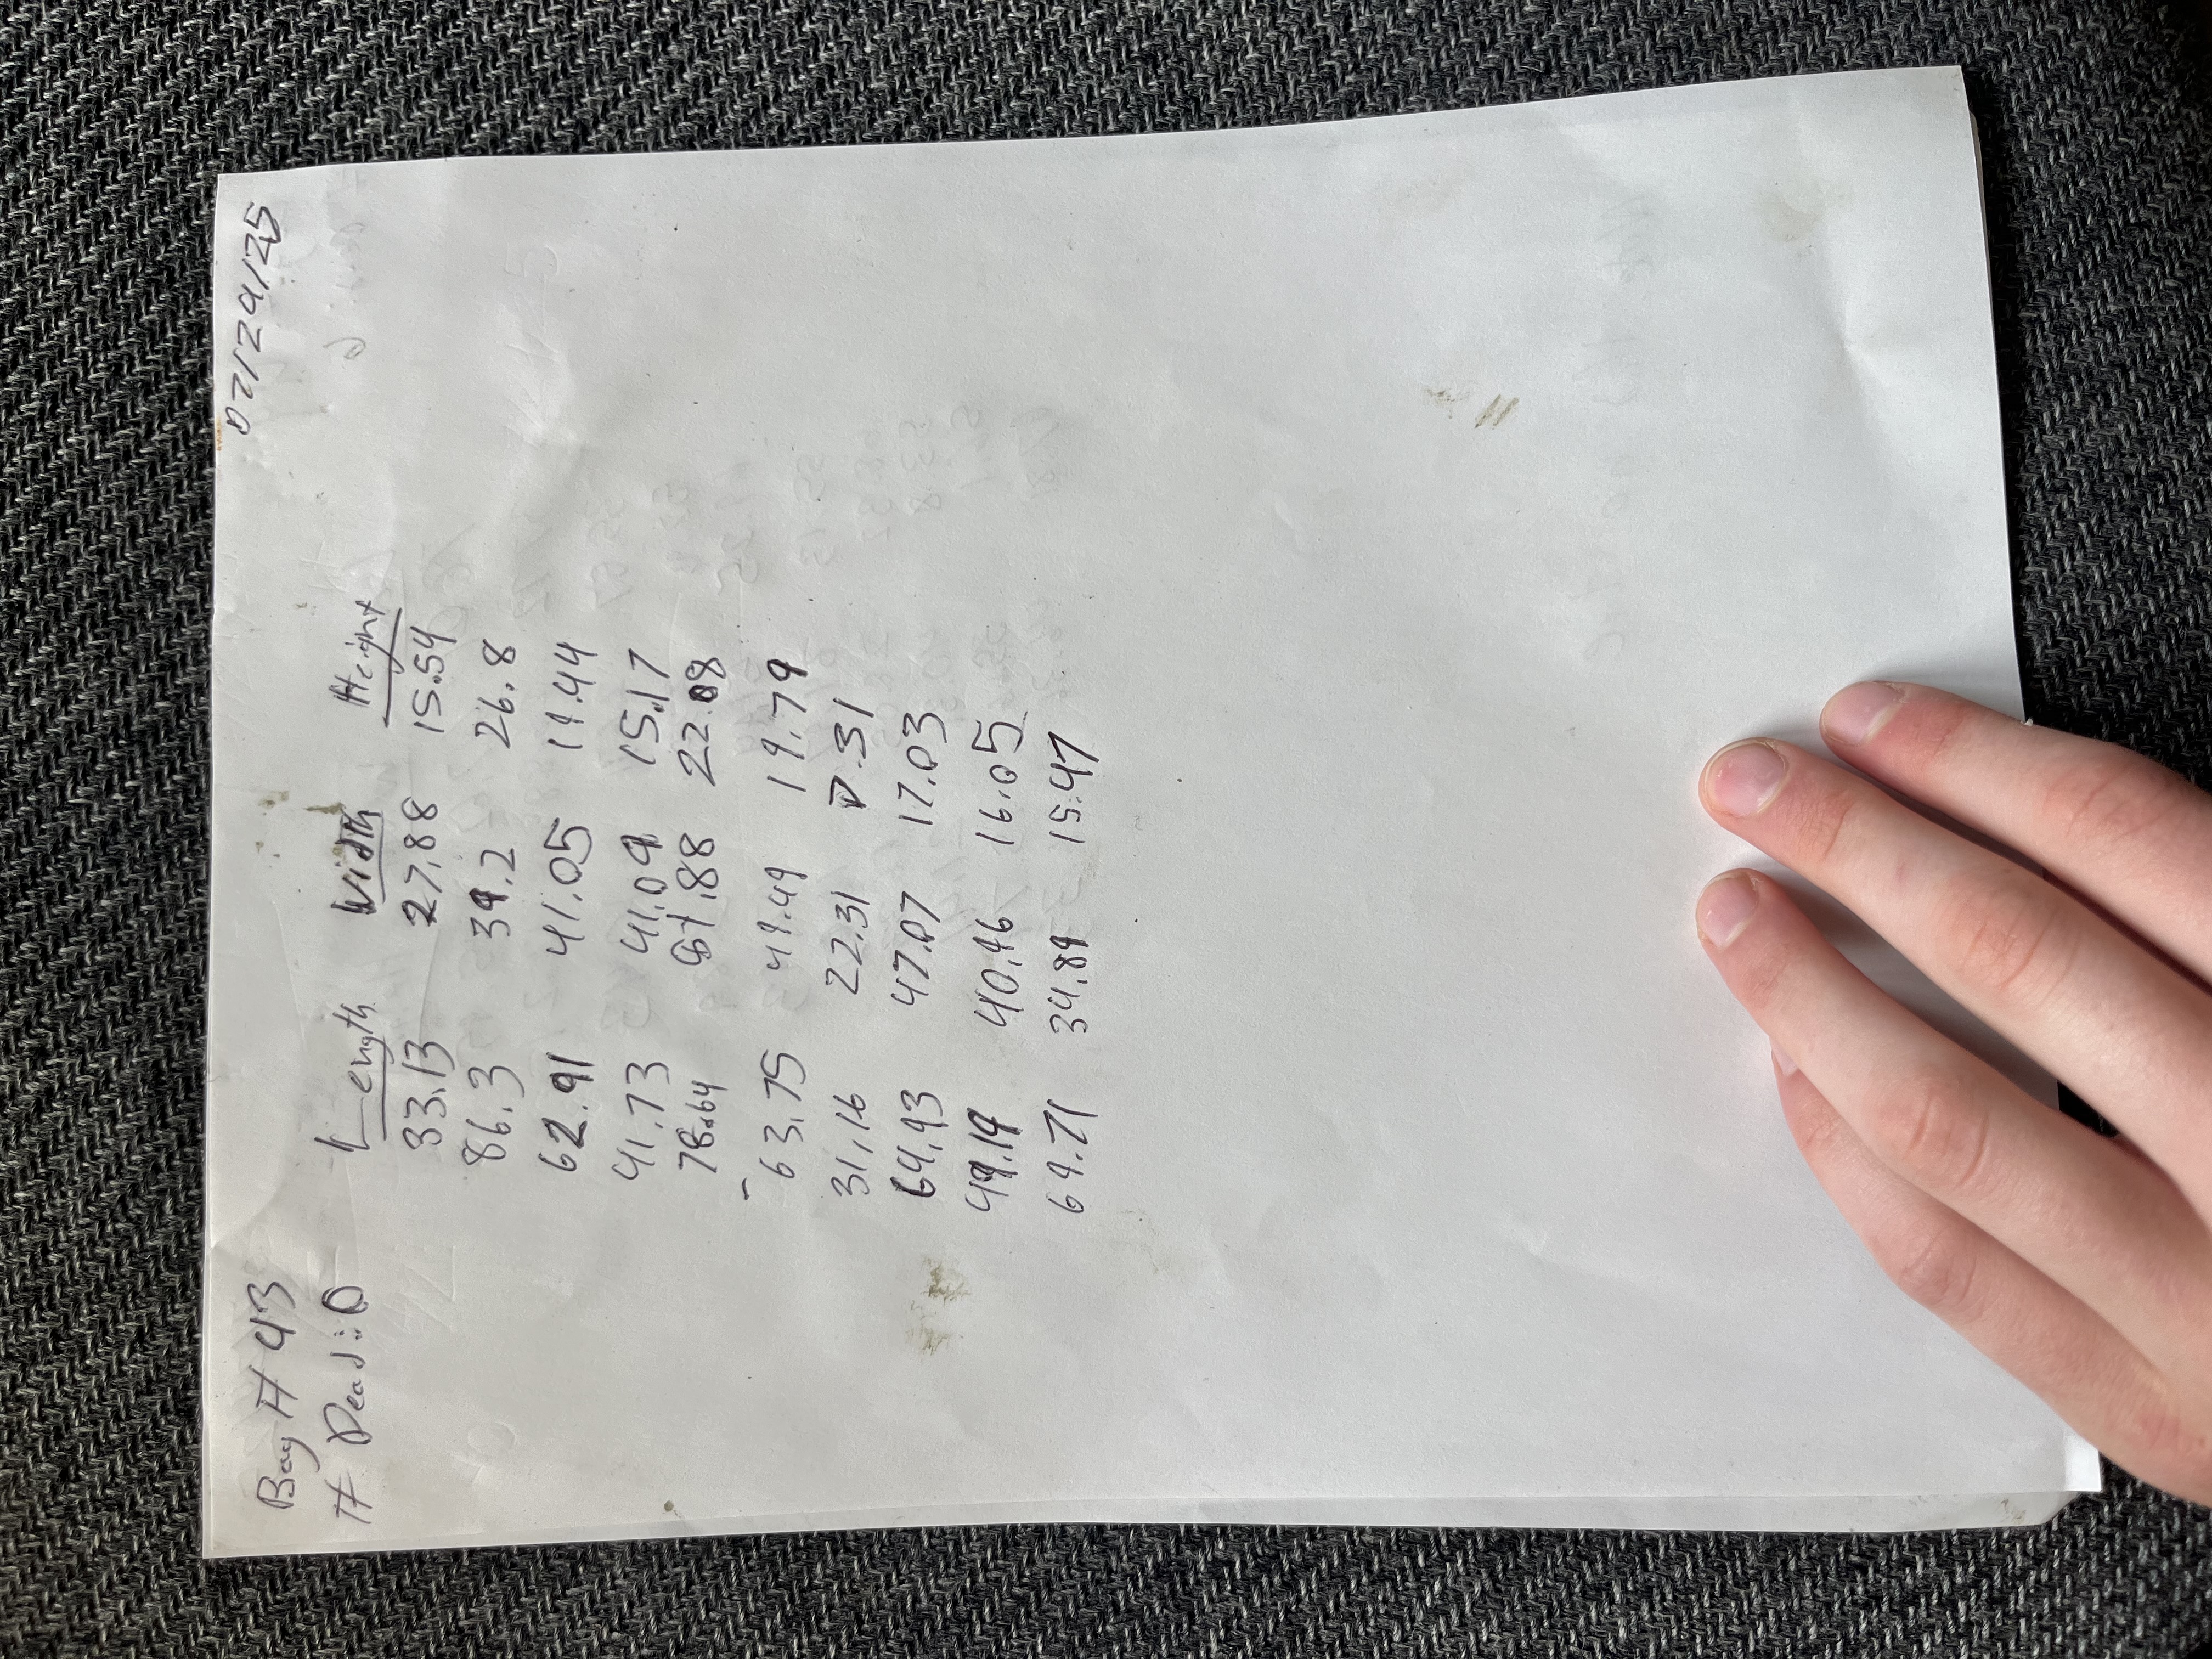 07/29/25
Bag # 43
# Dead: 0 Length Width Height
33.13 27.88 15.54
86.3 39.2 26.8
62.91 41.05 19.44
41.73 41.09 15.17
78.64 61.88 22.08
63.75 49.49 19.79
31.16 22.31 7.31
64.93 47.07 17.03
49.19 40.96 16.05
69.71 34.89 15.47